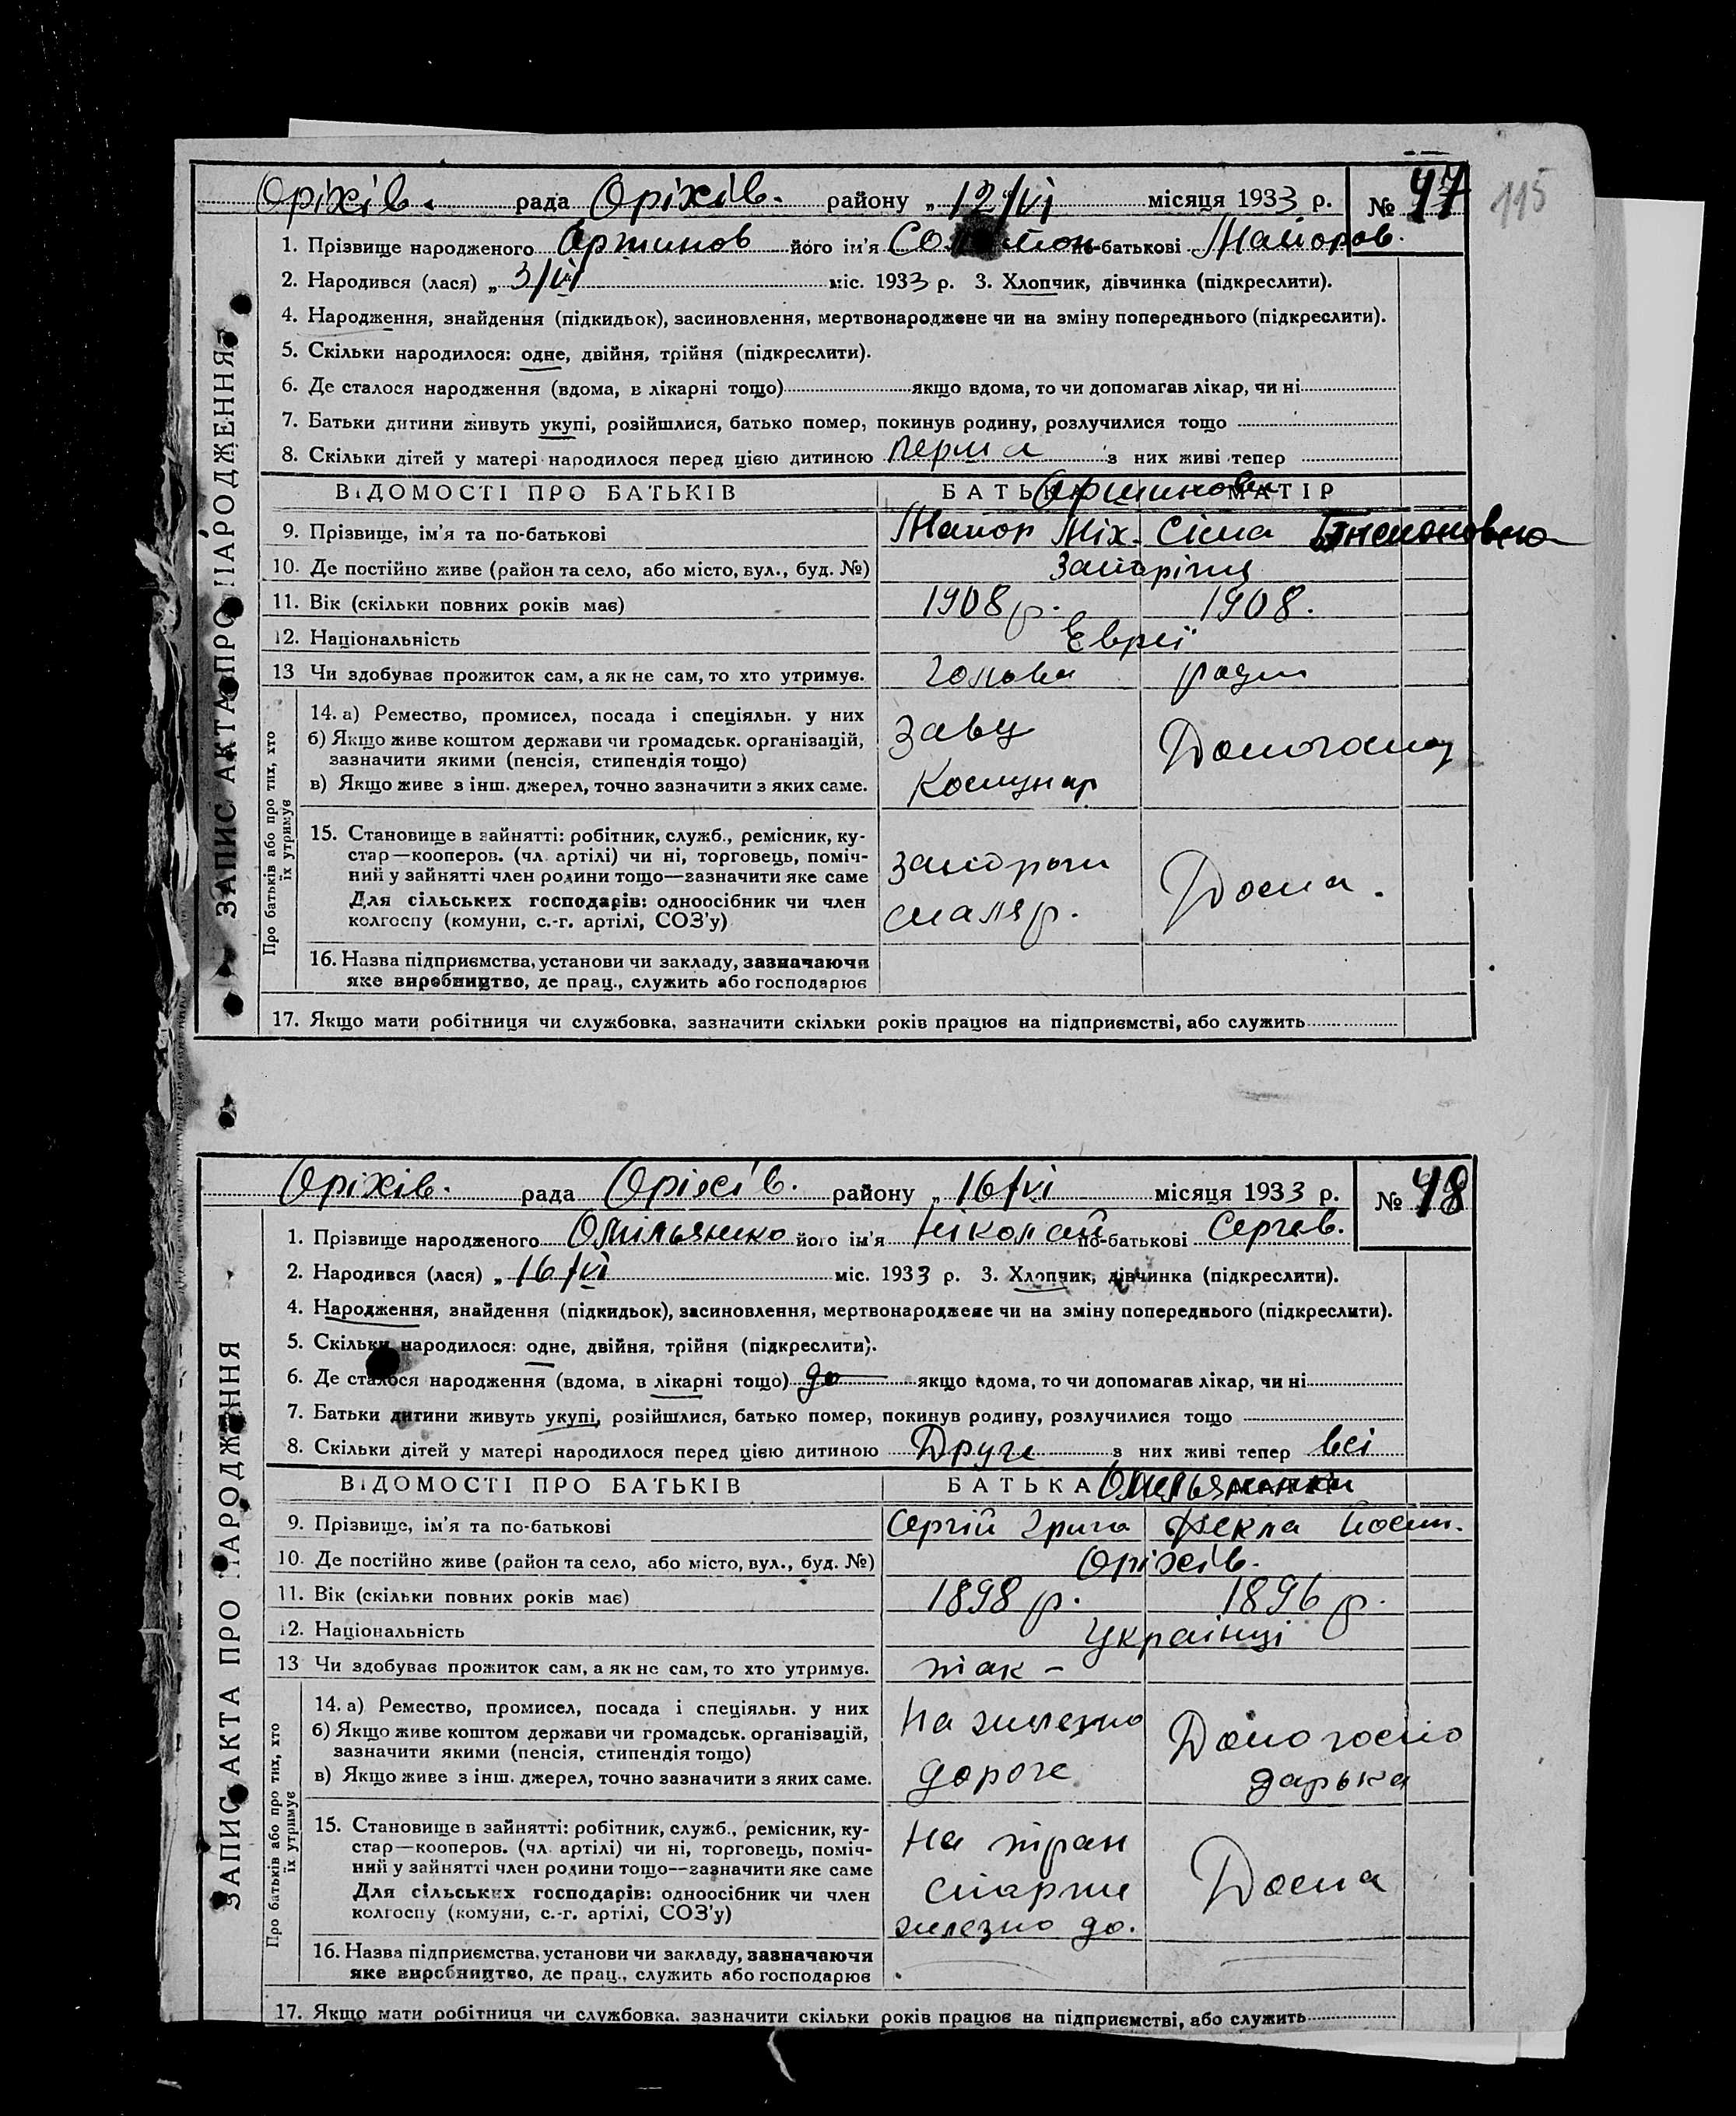 115
Оріхів. рада Оріхів. району „ 12/VI місяця 1933 р. № 47
1. Прізвище народженого його ім'я по-батькові Майоров.
2. Народився (лася) „ 3/VI міс. 1933 р. 3. Хлопчик, дівчинка (підкреслити).
4. Народження, знайдення (підкидьок), засиновлення, мертвонароджене чи на зміну попереднього (підкреслити).
5. Скільки народилося: одне, двійня, трійня (підкреслити).
6. Де сталося народження (вдома, в лікарні тощо) якщо вдома, то чи допомагав лікар, чи ні
7. Батьки дитини живуть укупі, розійшлися, батько помер, покинув родину, розлучилися тощо
8. Скільки дітей у матері народилося перед цією дитиною перша з них живі тепер
ВІДОМОСТІ ПРО БАТЬКІВ БАТЬКА МАТІР
9. Прізвище, ім'я та по-батькові Майор Міх. Сіма
10. Де постійно живе (район та село, або місто, вул., буд. №) Запоріжя
11. Вік (скільки повних років має) 1908 р. 1908.
12. Національність Євреї
13 Чи здобуває прожиток сам, а як не сам, то хто утримує. голова
14. а) Ремество, промисел, посада і спеціяльн. у них
б) Якщо живе коштом держави чи громадськ. організацій,
зазначити якими (пенсія, стипендія тощо)
в) Якщо живе з інш. джерел, точно зазначити з яких саме.
завц
Комунар
15. Становище в зайнятті: робітник, служб., ремісник, ку-
стар—кооперов. (чл. артілі) чи ні, торговець, поміч-
ний у зайнятті член родини тощо—зазначити яке саме
Для сільських господарів: одноосібник чи член
колгоспу (комуни, с.-г. артілі, СОЗ'у)
маляр. Дома.
16. Назва підприємства, установи чи закладу, зазначаючи
яке виробництво, де прац., служить або господарює
17. Якщо мати робітниця чи службовка, зазначити скільки років працює на підприємстві, або служить
ЗАПИС АКТА ПРО НАРОДЖЕННЯ
Про батьків або про тих, хто
їх утримує
Оріхів. рада Оріхів. району „ 16/VI місяця 1933 р. № 48
1. Прізвище народженого Омільянко його ім'я Ніколай по-батькові Сергєв.
2. Народився (лася) „ 16/VI міс. 1933 р. 3. Хлопчик, дівчинка (підкреслити).
4. Народження, знайдення (підкидьок), засиновлення, мертвонароджене чи на зміну попереднього (підкреслити).
5. Скільки народилося: одне, двійня, трійня (підкреслити).
6. Де сталося народження (вдома, в лікарні тощо) до якщо вдома, то чи допомагав лікар, чи ні
7. Батьки дитини живуть укупі, розійшлися, батько помер, покинув родину, розлучилися тощо
8. Скільки дітей у матері народилося перед цією дитиною Друге з них живі тепер всі
ВІДОМОСТІ ПРО БАТЬКІВ БАТЬКА
9. Прізвище, ім'я та по-батькові Сергій Григо Фекла
10. Де постійно живе (район та село, або місто, вул., буд. №) Оріхів.
11. Вік (скільки повних років має) 1898 р. 1896 р.
12. Національність Українці
13 Чи здобуває прожиток сам, а як не сам, то хто утримує. так –
14. а) Ремество, промисел, посада і спеціяльн. у них
б) Якщо живе коштом держави чи громадськ. організацій,
зазначити якими (пенсія, стипендія тощо)
в) Якщо живе з інш. джерел, точно зазначити з яких саме.
На железно Домогоспо
дороге дарька
15. Становище в зайнятті: робітник, служб., ремісник, ку-
стар—кооперов. (чл. артілі) чи ні, торговець, поміч-
ний у зайнятті член родини тощо—зазначити яке саме
Для сільських господарів: одноосібник чи член
колгоспу (комуни, с.-г. артілі, СОЗ'у)
На тран Дома
железно до.
16. Назва підприємства, установи чи закладу, зазначаючи
яке виробництво, де прац., служить або господарює
17. Якщо мати робітниця чи службовка, зазначити скільки років працює на підприємстві, або служить
ЗАПИС АКТА ПРО НАРОДЖЕННЯ
Про батьків або про тих, хто
їх утримує